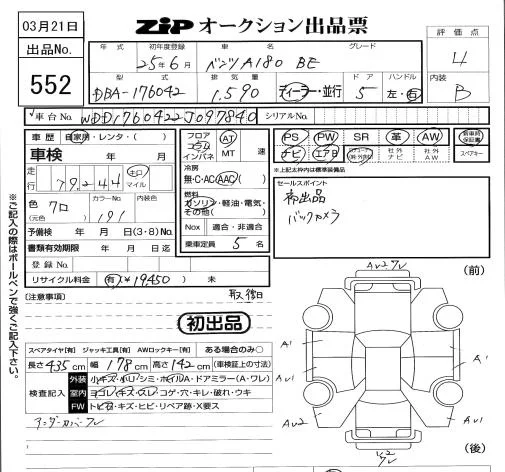 03月21日
ZIP オークション出品票
出品No.
552
評価点
4
内装
B
年式 初年度登録 車名 グレード
25年6月 ベンツA180 BE
型式 排気量 ドア ハンドル
DBA-176042 1,590 ディーラー・並行 5 左・右
車台No. WDD1760422J097840 シリアルNo.
車歴 自家用・レンタ・( )
車検 年 月
走行 79,244 キロ マイル
色(元色) クロ カラーNo. 191 内装色
予備検 年 月 日(3・8)No.
書類有効期限 年 月 日迄
登録No.
リサイクル料金 有 ¥19,450 未
フロア コラム インパネ AT MT 速
冷房 無・C・AC・AAC( )
燃料 ガソリン・軽油・電気・その他( )
Nox 適合・非適合
乗車定員 5 名
PS PW SR 革 AW 新車時保証書
ナビ エアB 社外ナビ 社外AW スペアキー
*上記太枠内は標準装備品
セールスポイント
初出品
バックカメラ
※ご記入の際はボールペンで強くご記入下さい。
(注意事項)
初出品
スペアタイヤ[有] ジャッキ工具[有] AWロックキー[有] ある場合のみ○
長さ435cm 幅178cm 高さ142cm (車検証上の寸法)
検査記入
外装 小キズ・小凹/シミ・ホイルA・ドアミラー(A・ワレ)
室内 ヨゴレ/キズ・スレ/コゲ・穴・キレ・破れ・ウキ
FW トビ石・キズ・ヒビ・リペア跡・X要ス
アンダーカバーワレ
(前)
A1
A1
A1
AU1
AU2
AU1
(後)